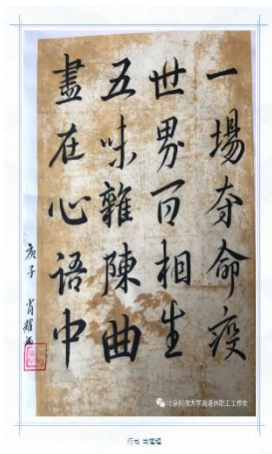 一場夺命疫
世界百相生
五味雜陳曲
盡在心語中
庚子 肖耀
北京科技大学离退休职工工作处
行书